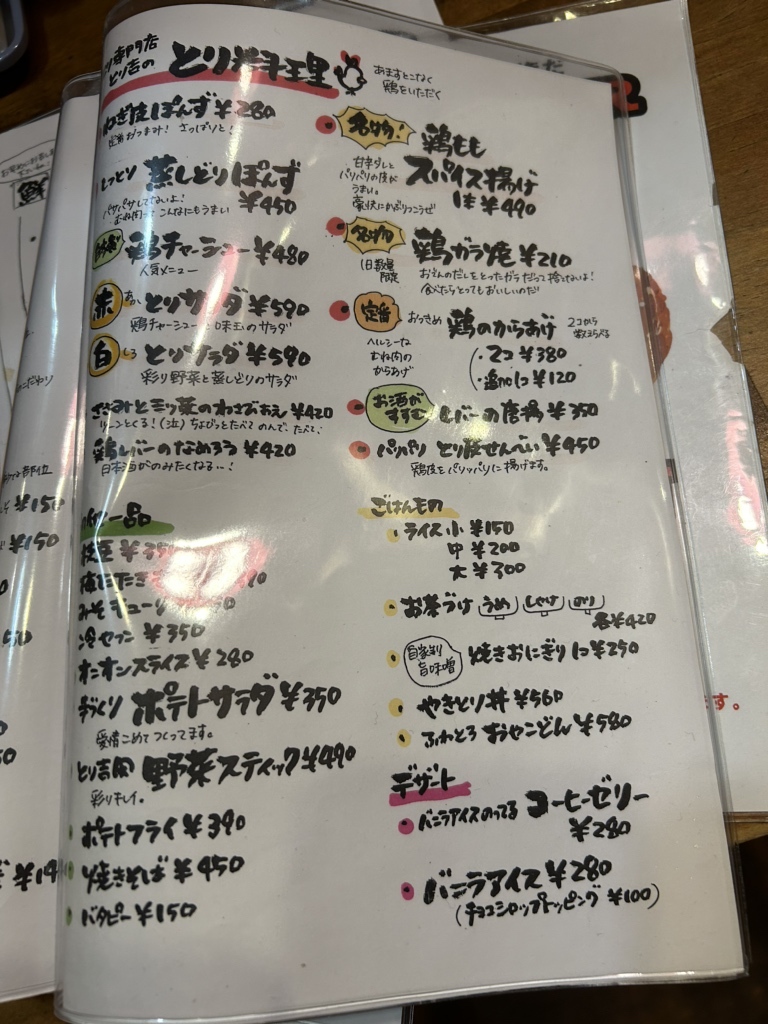 とり吉の とり料理
あますとこなく
鶏をいただく
ねぎ皮ぽんず ¥280
さっぱりと!
しっとり 蒸しどりぽんず
¥450
パサパサしてないよ!
むね肉ってこんなにもうまい
鶏チャーシュー ¥480
人気メニュー
赤 とりサラダ ¥590
鶏チャーシューと味玉のサラダ
白 しろ とりサラダ ¥590
彩り野菜と蒸しどりのサラダ
ささみと三ツ葉のわさびあえ ¥420
ツーンとくる!(泣) ちょびっとたべて のんで、たべて、
鶏レバーのなめろう ¥420
日本酒がのみたくなる…!
一品
枝豆
みそきゅーり
冷やっこ ¥350
オニオンスライス ¥280
手づくり ポテトサラダ ¥350
愛情こめてつくってます。
とり吉風 野菜スティック ¥490
彩りキレイ。
ポテトフライ ¥390
焼きそば ¥450
バタピー ¥150
名物! 鶏もも
スパイス揚げ
1本 ¥490
甘辛ダレと
パリパリの皮が
うまい。
豪快にかぶりつこうぜ
名物 鶏ガラ焼 ¥210
1日数量
限定
おさんのだしをとったガラだって捨てないよ!
食べたらとってもおいしいのだ
定番 おっきめ 鶏のからあげ
2コから
ヘルシーな
むね肉の
からあげ
・2コ ¥380
・追加1コ ¥120
お酒が
すすむ レバーの唐揚 ¥350
パリパリ とり皮せんべい ¥450
鶏皮をパリッパリに揚げます。
ごはんもの
ライス 小 ¥150
中 ¥200
大 ¥300
お茶づけ うめ しゃけ のり
各¥420
自家製
旨味噌 焼きおにぎり 1コ ¥250
やきとり丼 ¥560
ふわとろ おやこどん ¥580
デザート
バニラアイスのってる コーヒーゼリー
¥280
バニラアイス ¥280
(チョコシロップトッピング ¥100)
¥150
¥150
す。